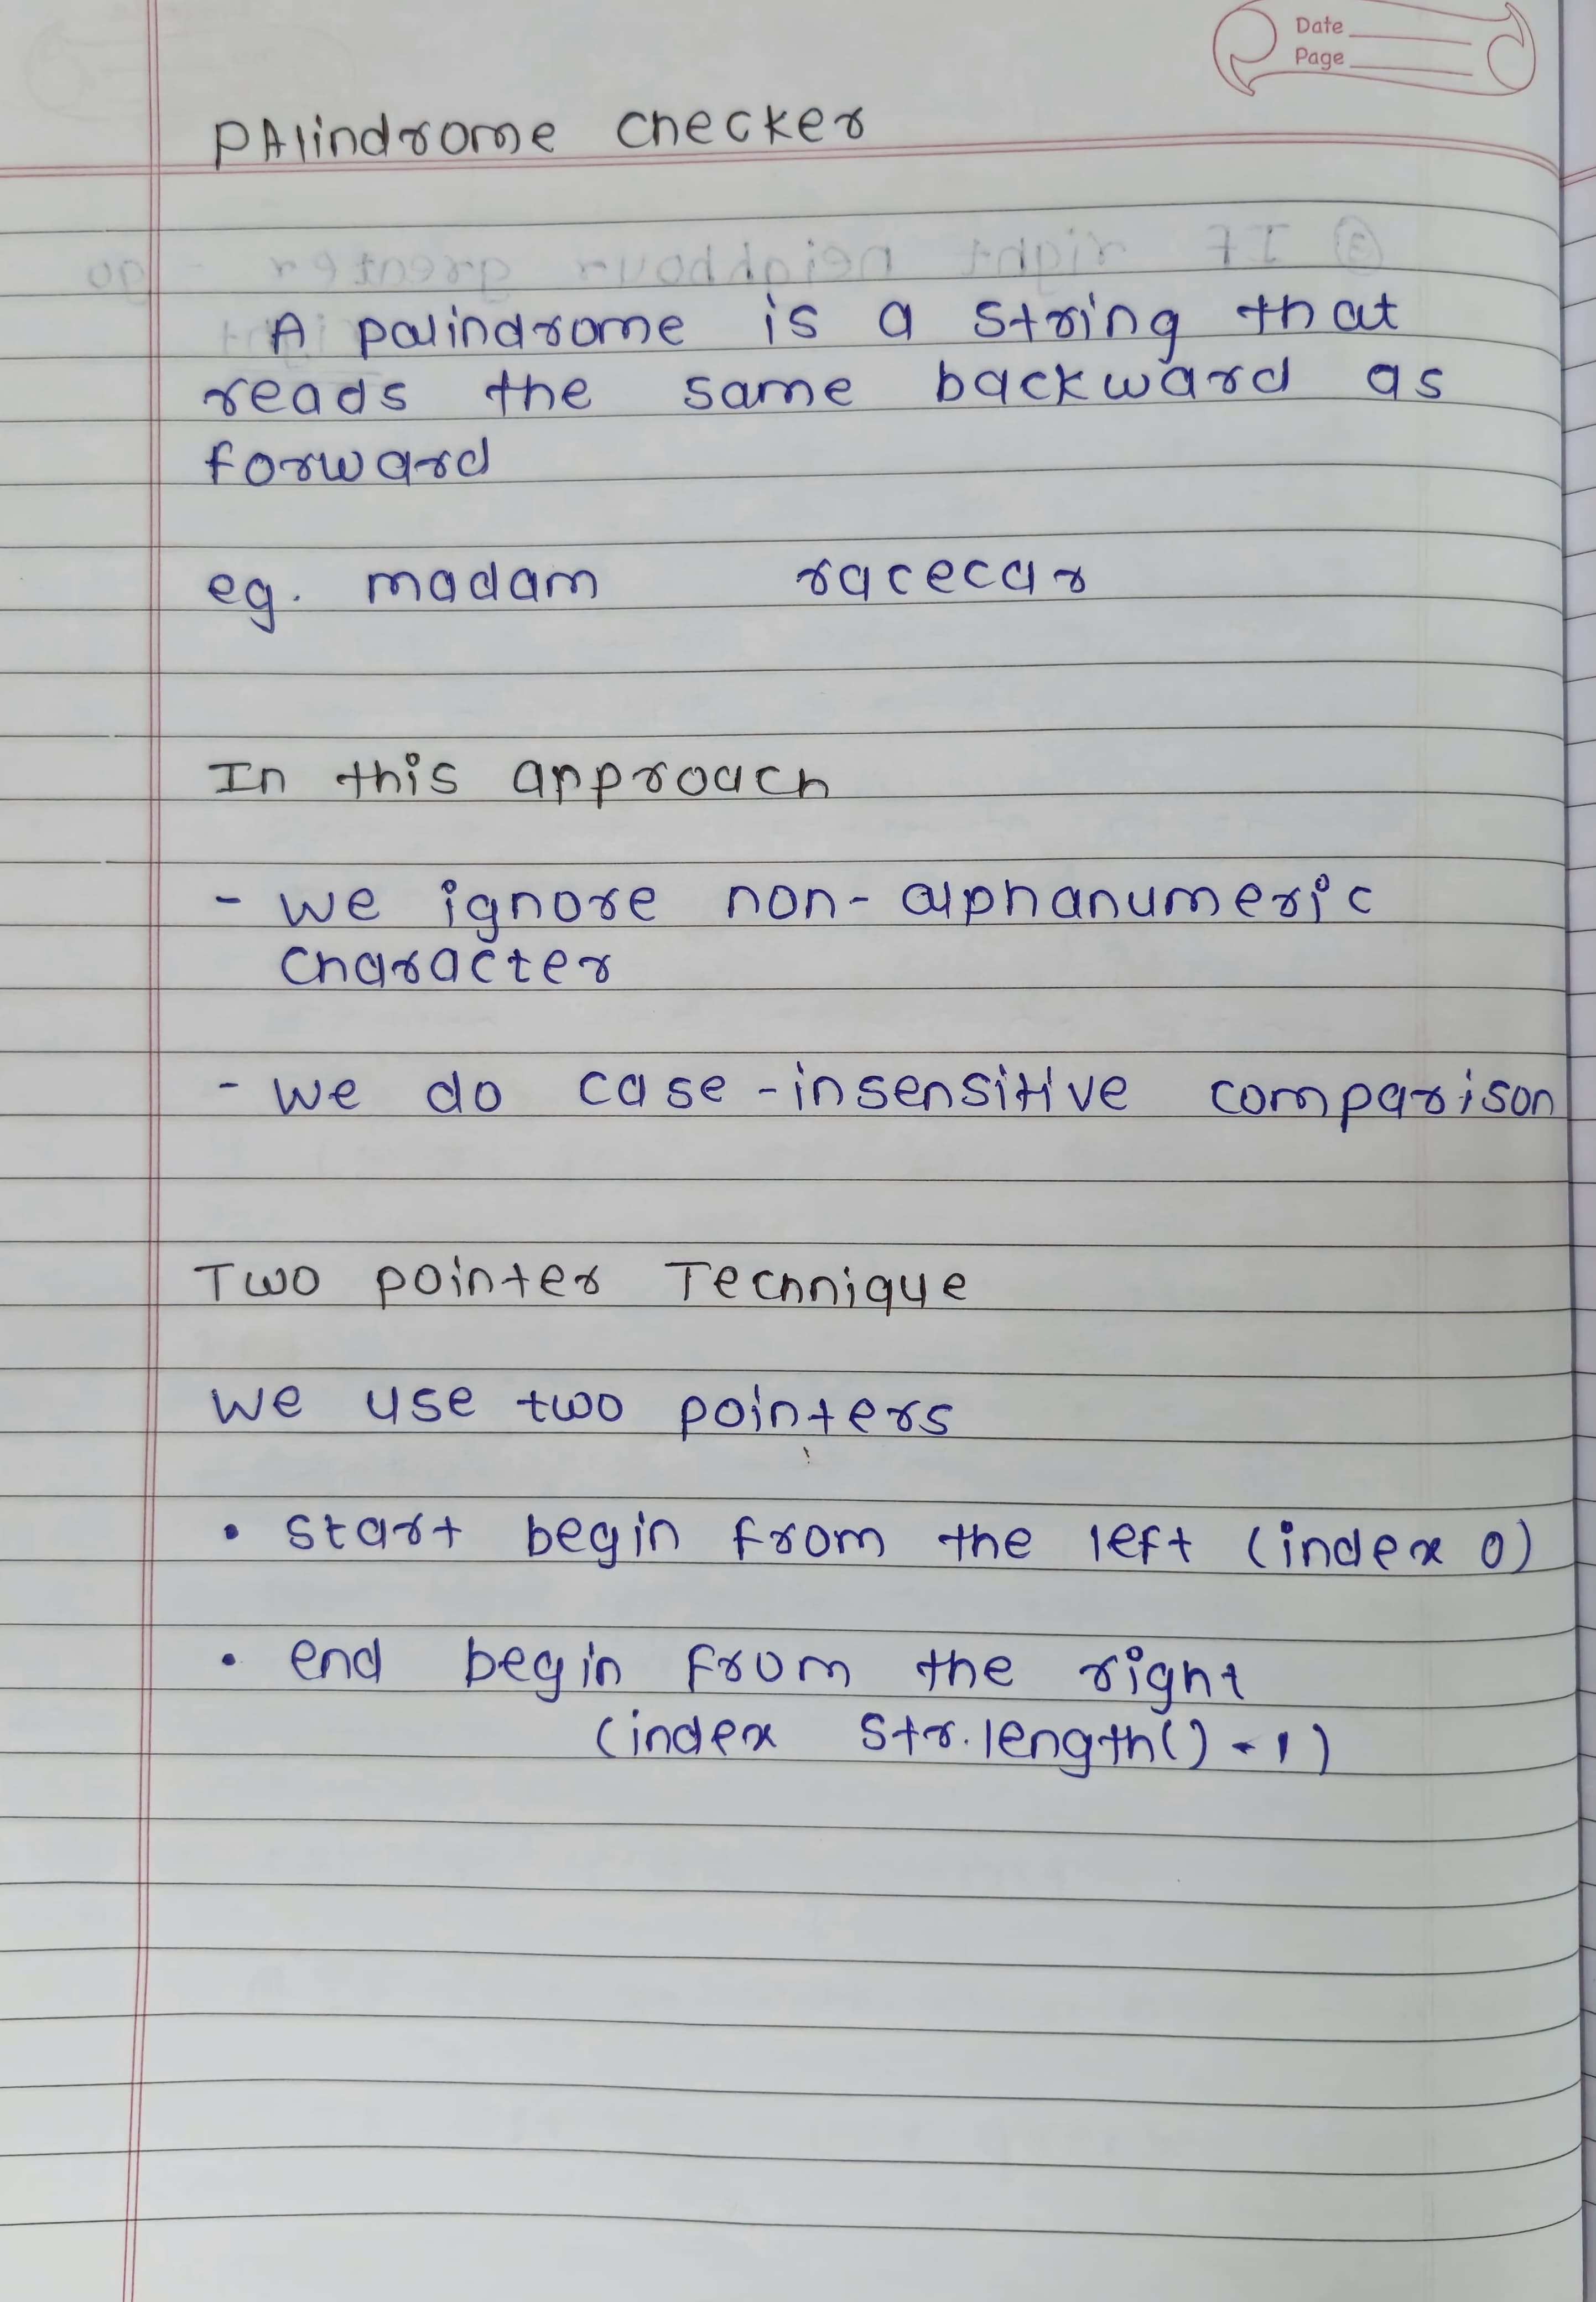 Date
Page
PAlindrome checker
A palindrome is a string that
reads the same backward as
forward
eg. madam racecar
In this approach
- we ignore non-alphanumeric
character
- we do case-insensitive comparison
Two pointer Technique
we use two pointers
• start begin from the left (index 0)
• end begin from the right
(index str.length() - 1)